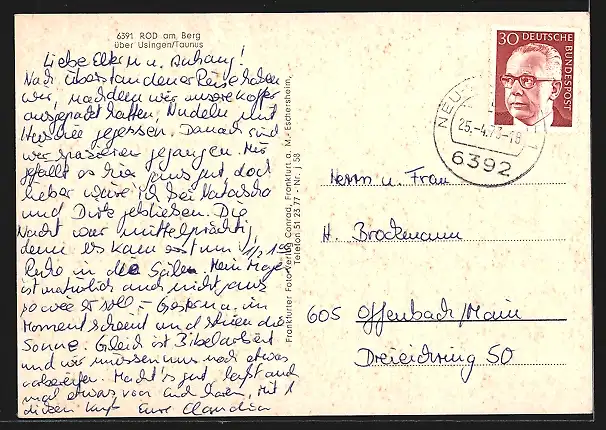 6391 ROD am Berg
über Usingen/Taunus
Liebe Eltern u. Anhang!
Nach überstandener Reise haben
wir, nachdem wir unsere Koffer
ausgepackt hatten, Nudeln mit
gegessen. Danach sind
wir spazieren gegangen. Mir
gefällt es hier ganz gut, doch
lieber wäre ich bei Natascha
und Dirk geblieben. Die
Nacht war mittelprächtig,
denn es kam erst um 1/2 1
Ruhe in die Säle. Mein
ist natürlich auch nicht ganz
so wie er soll – Gestern u. im
Moment scheint und schien die
Sonne. Gleich ist Bibelarbeit
und wir müssen uns noch etwas
vorbereiten. Macht's gut, laßt auch
mal etwas von Euch hören, Mit 1
dicken Kuß Eure Claudia
Frankfurter Foto-Verlag Conrad, Frankfurt a. M.-Eschersheim,
Telefon 51 23 77 - Nr. J 58
30 DEUTSCHE
BUNDESPOST
NEU-
25.-4.77-18
6392
Herrn u. Frau
H. Brockmann
605 Offenbach/Main
Dreieichring 50